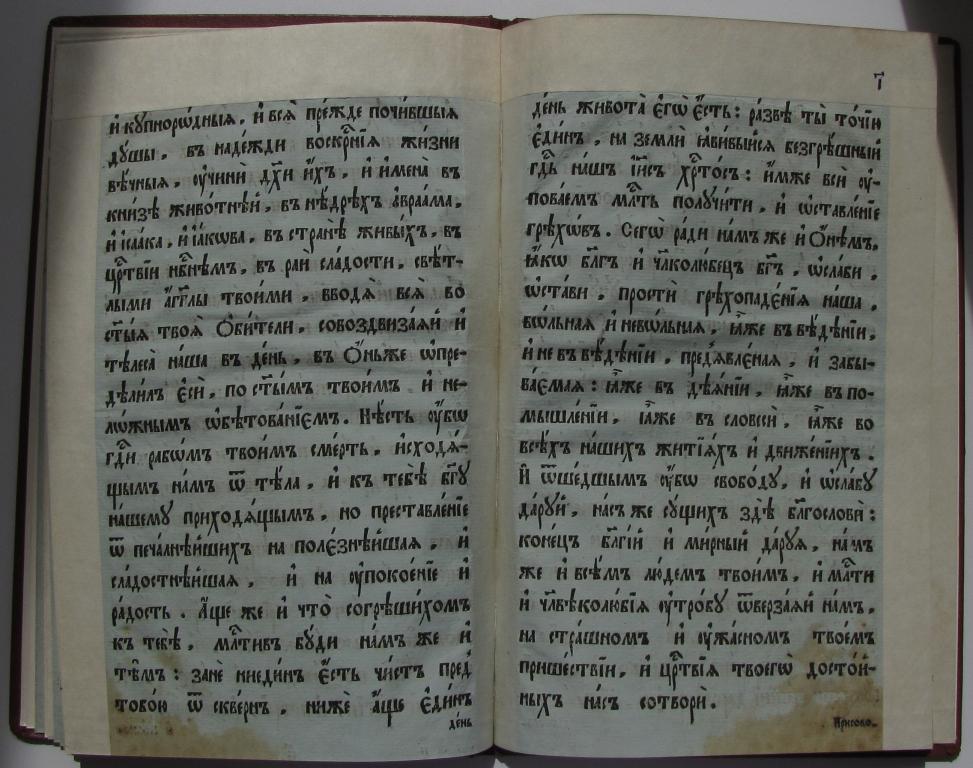 и҆ кꙋпнорѡ́дныѧ, и҆ всѧ̀ пре́жде почи́вшыѧ
дꙋ́шы, въ наде́жди воскр҇нїѧ жи́зни
вѣ́чныѧ, ᲂу҆чинѝ дх҃и и҆́хъ, и҆ и҆мена̀ въ
кни́зѣ живо́тнѣй, въ нѣ́дрѣхъ а҆враа́ма,
и҆ і҆саа́ка, и҆ і҆а́кѡва, въ странѣ̀ живы́хъ, въ
црⷭ҇твїи нбⷭ҇нѣмъ, въ раѝ сла́дости, свѣ́т-
лыми а҆́гг҃лы твои́ми, вводѧ̀ всѧ̀ во
ст҃ы́ѧ твоѧ̀ ѻ҆би́тели, совоздвиза́ѧй и҆
тѣлеса̀ на́ша въ де́нь, въ ѻ҆́ньже ѡ҆пре-
дѣли́лъ є҆сѝ, по ст҃ы́мъ твои́мъ и҆ не-
ло́жнымъ ѡ҆бѣтова́нїємъ. Нѣ́сть ᲂу҆́бѡ
гдⷭ҇и рабѡ́мъ твои̑мъ сме́рть, и҆сходѧ́-
щымъ на́мъ ѿ тѣ́ла, и҆ къ тебѣ̀ бг҃ꙋ
на́шемꙋ приходѧ́щымъ, но преставле́нїе
ѿ печа́лнѣйшихъ на поле́знѣйшаѧ, и҆
сла́достнѣйшаѧ, и҆ на ᲂу҆покое́нїе и҆
ра́дость. А҆́ще же и҆ что̀ согрѣши́хомъ
къ тебѣ̀, млⷭ҇тивъ бꙋ́ди на́мъ же и҆
тѣ̑мъ: занѐ ниеди́нъ є҆́сть чи́стъ пред̾
тобо́ю ѿ скве́рнъ, нижѐ а҆́ще є҆ди́нъ
де́нь
і҃
де́нь живота̀ є҆гѡ̀ є҆́сть: ра́звѣ ты̀ то́чїю
є҆ди́нъ, на землѝ ꙗ҆ви́выйсѧ безгрѣ́шный
гдⷭ҇ь на́шъ і҆и҃съ хрⷭ҇то́съ: и҆́мже всѝ ᲂу҆-
пова́емъ млⷭ҇ть полꙋчи́ти, и҆ ѡ҆ставле́нїе
грѣхѡ́въ. Сегѡ̀ ра́ди на́мъ же и҆ ѻ҆́нѣмъ,
ꙗ҆́кѡ бл҃гъ и҆ чл҃колю́бецъ бг҃ъ, ѡ҆сла́би,
ѡ҆ста́ви, простѝ грѣхопаде́нїѧ на́ша,
вѡ́льнаѧ и҆ невѡ́льнаѧ, ꙗ҆̀же въ вѣ́дѣнїи,
и҆ не въ вѣ́дѣнїи, пред̾ѧвле́наѧ, и҆ забы-
ва́емаѧ: ꙗ҆̀же въ дѣѧ́нїи, ꙗ҆̀же въ по-
мышле́нїи, ꙗ҆̀же въ словесѝ, ꙗ҆̀же во
всѣ́хъ на́шихъ жити́ѧхъ и҆ движе́нїихъ.
И҆ ѿше́дшымъ ᲂу҆́бѡ свобо́дꙋ, и҆ ѡ҆сла́бꙋ
да́рꙋй, на́съ же сꙋ́щихъ здѣ̀ бл҃гословѝ:
коне́цъ бл҃гі́й и҆ ми́рный да́рꙋѧ, на́мъ
же и҆ всѣ̑мъ лю́демъ твои́мъ, и҆ млⷭ҇ти
и҆ чл҃вѣколю́бїѧ ᲂу҆тро́бꙋ ѿверза́ѧй на́мъ,
на стра́шномъ и҆ ᲂу҆жа́сномъ твое́мъ
прише́ствїи, и҆ црⷭ҇твїѧ твоегѡ̀ досто́й-
ныхъ на́съ сотворѝ.